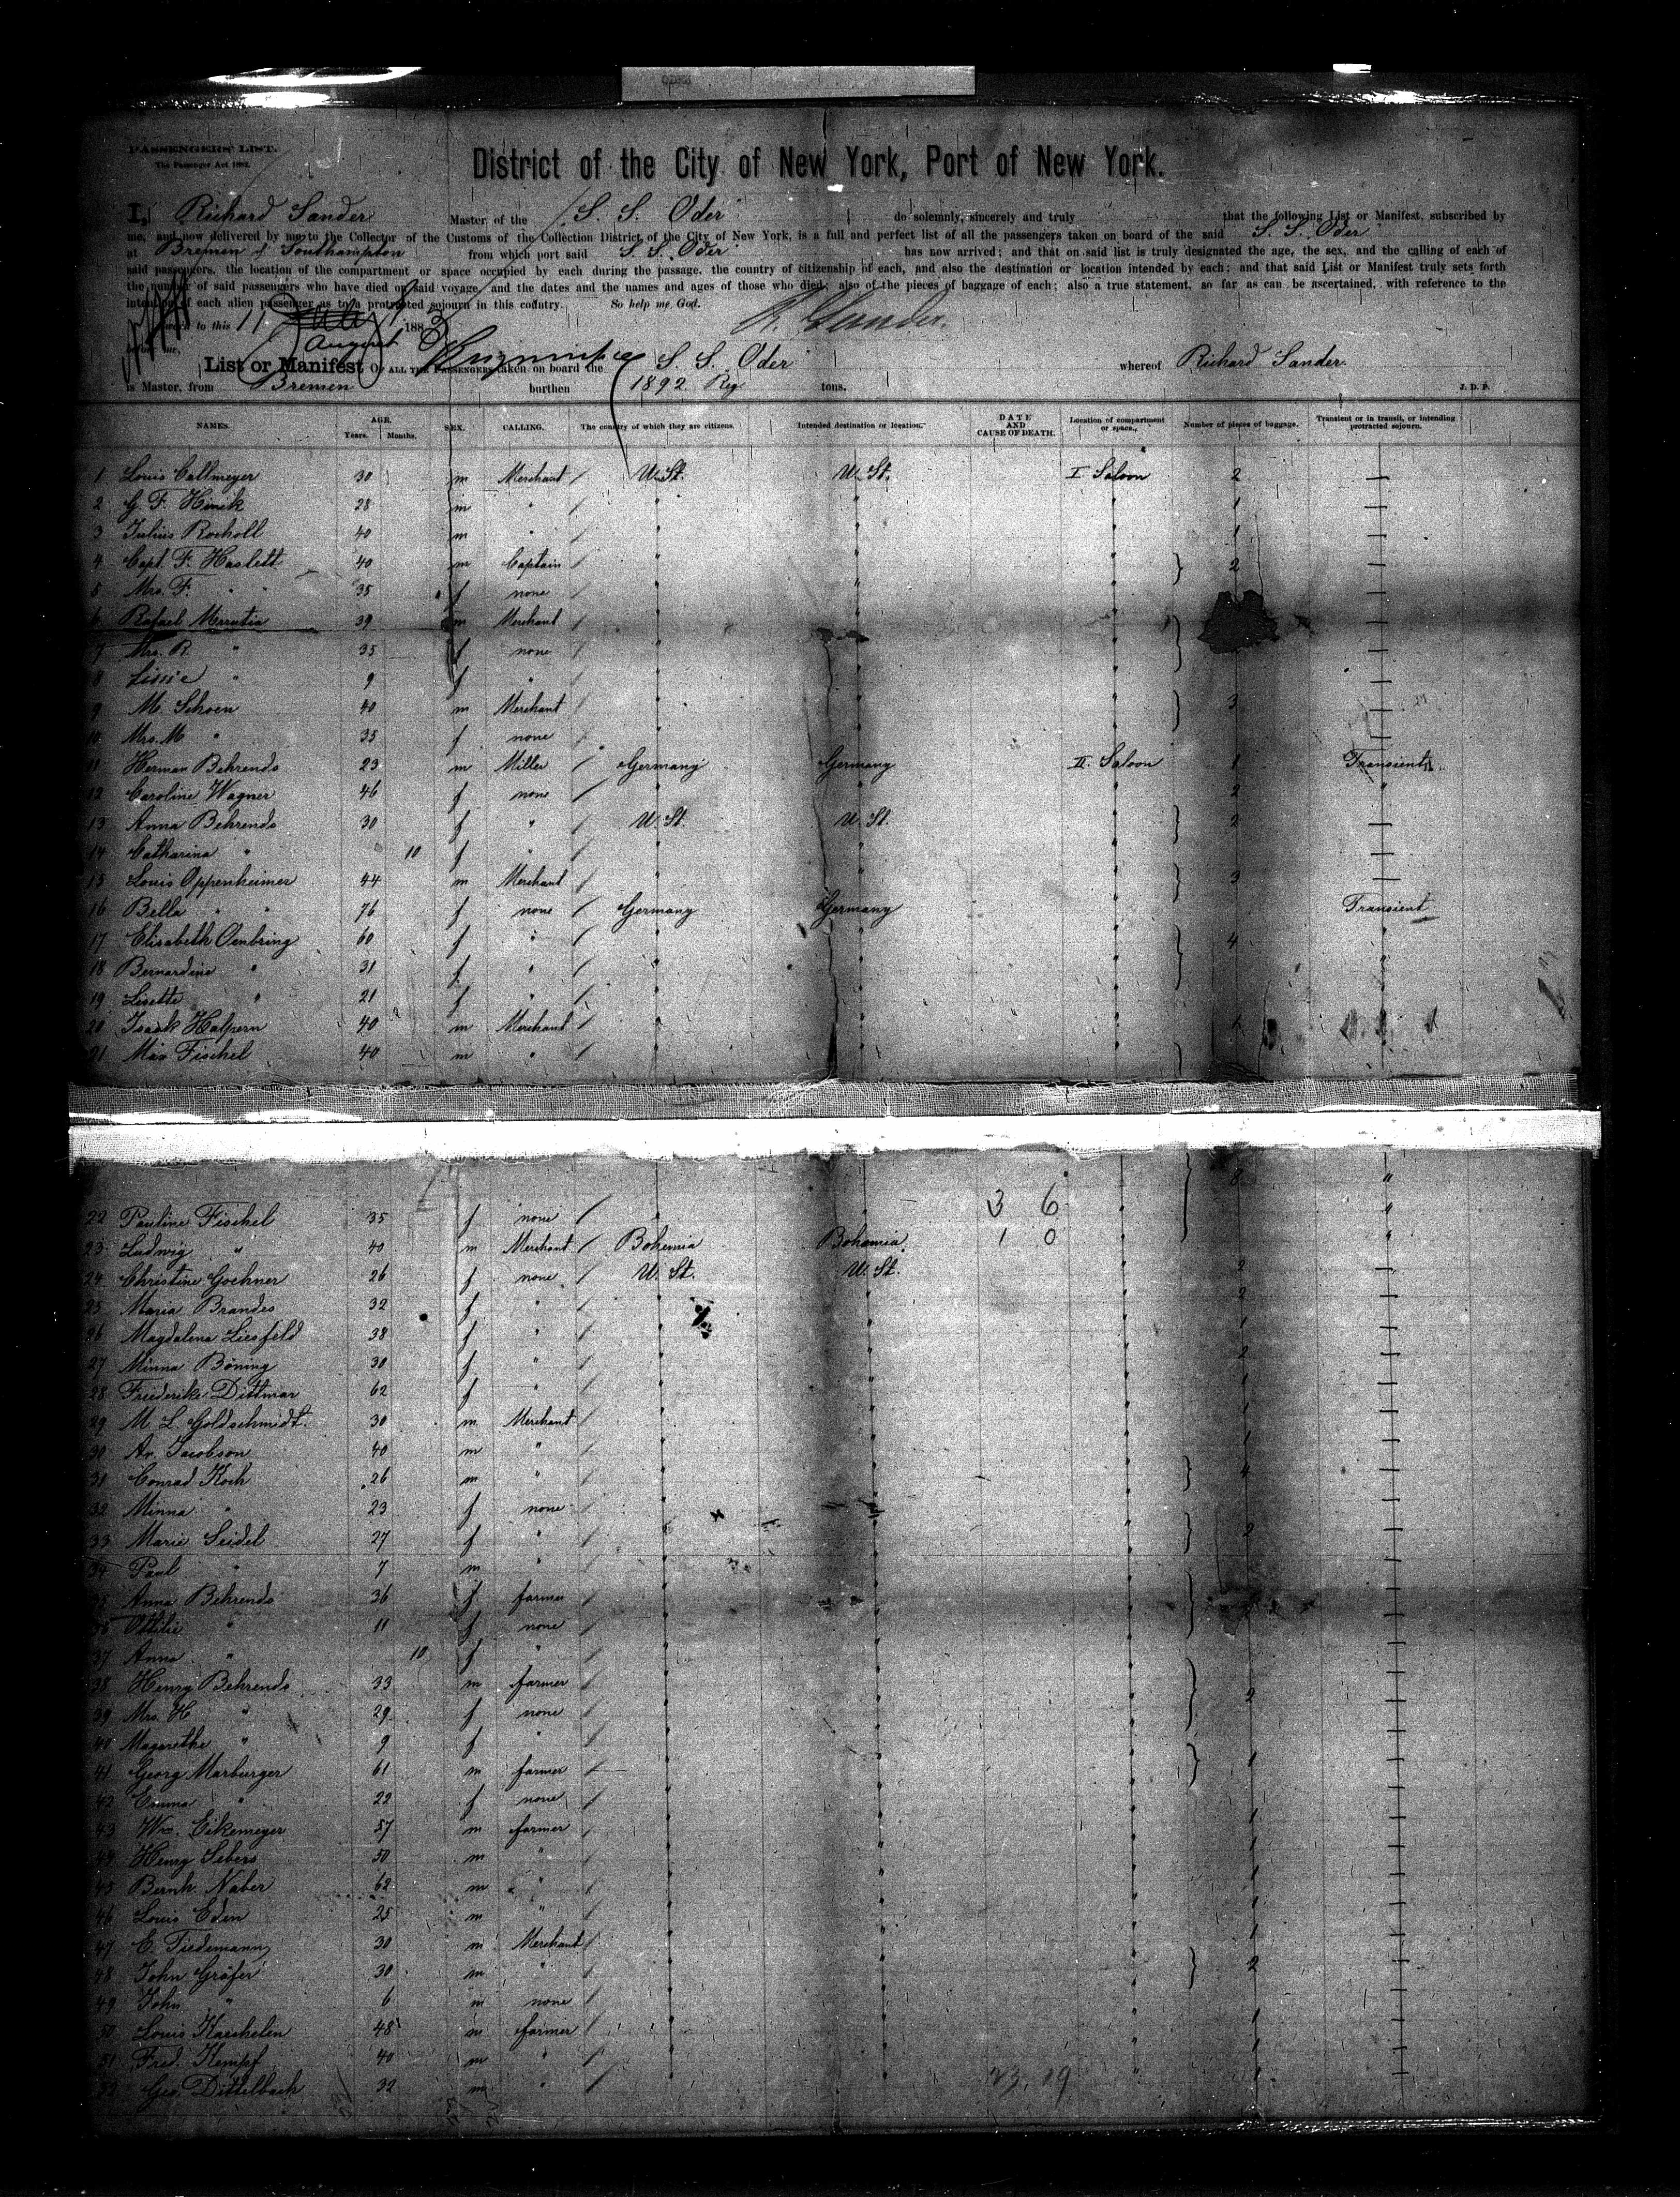 PASSENGERS' LIST.
The Passenger Act 1882.
District of the City of New York, Port of New York.
I, Richard Sander Master of the S. S. Oder do solemnly, sincerely and truly that the following List or Manifest, subscribed by
me, and now delivered by me to the Collector of the Customs of the Collection District of the City of New York, is a full and perfect list of all the passengers taken on board of the said S. S. Oder
at Bremen & Southampton from which port said S. S. Oder has now arrived; and that on said list is truly designated the age, the sex, and the calling of each of
said passengers, the location of the compartment or space occupied by each during the passage, the country of citizenship of each, and also the destination or location intended by each; and that said List or Manifest truly sets forth
the number of said passengers who have died on said voyage, and the dates and the names and ages of those who died; also of the pieces of baggage of each; also a true statement, so far as can be ascertained, with reference to the
intention of each alien passenger as to a protracted sojourn in this country. So help me God.
to this 11 July 1883 R. Sander.
August
List or Manifest OF ALL THE PASSENGERS taken on board the S. S. Oder whereof Richard Sander.
is Master, from Bremen burthen 1892 Reg tons. J. D. P.
NAMES. AGE. Years. Months. SEX. CALLING. The country of which they are citizens. Intended destination or location. DATE AND CAUSE OF DEATH. Location of compartment or space. Number of pieces of baggage. Transient or in transit, or intending protracted sojourn.
1 Louis Callmeyer 30 m Merchant U. St. U. St. I Saloon 2 —
2 G. F. 28 m " " " " 1 —
3 Julius Rocholl 40 m " " " " 1 —
4 Capt. F. Haslett 40 m Captain " " " 2 —
5 Mrs. F. " " 35 f none " " " —
6 Rafael 39 m Merchant " " " —
7 Mrs. R. " 35 f none " " " —
8 Lissie " 9 f " " " " —
9 M. Schoen 40 m Merchant " " " 3 —
10 Mrs. M " 35 f none " " " —
11 Herman Behrends 23 m Miller Germany Germany II. Saloon 1 Transient
12 Caroline Wagner 46 f none " " " 2 "
13 Anna Behrends 30 f " U. St. U. St. " 2 —
14 Catharina " 10 f " " " " —
15 Louis Oppenheimer 44 m Merchant " " " 3 —
16 Bella " " 76 f none Germany Germany " Transient
17 Elisabeth Oenbring 60 f " " " " 4 "
18 Bernardine " 31 f " " " " "
19 Lisette " 21 f " " " " "
20 Isaak Halpern 40 m Merchant " " "
21 Max Fischel 40 m " " " "
8 "
22 Pauline Fischel 35 f none " " 3 6 " "
23 Ludwig " 40 m Merchant Bohemia Bohemia 1 0 " "
24 Christine Gochner 26 f none U. St. U. St. " 2 —
25 Maria Brandes 32 f " " " " 2 —
26 Magdalena Liesfeld 38 f " " " " 1 —
27 Minna Böning 30 f " " " " 2 —
28 Friederike Dittmar 62 f " " " " 1 —
29 M. L. Goldschmidt 30 m Merchant " " " 1 —
30 Av. Jacobson 40 m " " " " 1 —
31 Conrad Koch 26 m " " " " 4 —
32 Minna " 23 f none " " " —
33 Marie Seidel 27 f " " " " 2 —
34 Paul " 7 m " " " " —
35 Anna Behrends 36 f farmer " " " 2 —
36 Ottilie " 11 f none " " " —
37 Anna " 10 f " " " " —
38 Henry Behrends 33 m farmer " " " 2 —
39 Mrs. H " 29 f none " " " —
40 Magarethe " 9 f " " " " —
41 Georg Marburger 61 m farmer " " " 1 —
42 Emma " 22 f none " " " —
43 Wm. Eikemeyer 57 m farmer " " " 1 —
44 Henry Sebers 50 m " " " " 1 —
45 Bernh. Naber 62 m " " " " 1 —
46 Louis Eden 25 m " " " " 1 —
47 E. Tiedemann 30 m Merchant " " " 1 —
48 John Gräfer 30 m " " " " 2 —
49 John " 6 m none " " " —
50 Louis Kaechelin 48 m farmer " " " 1 —
51 Fred. Kempf 40 m " " " " 1 —
52 Geo. Dittelbach 32 m " " " 23.19 " 1 —